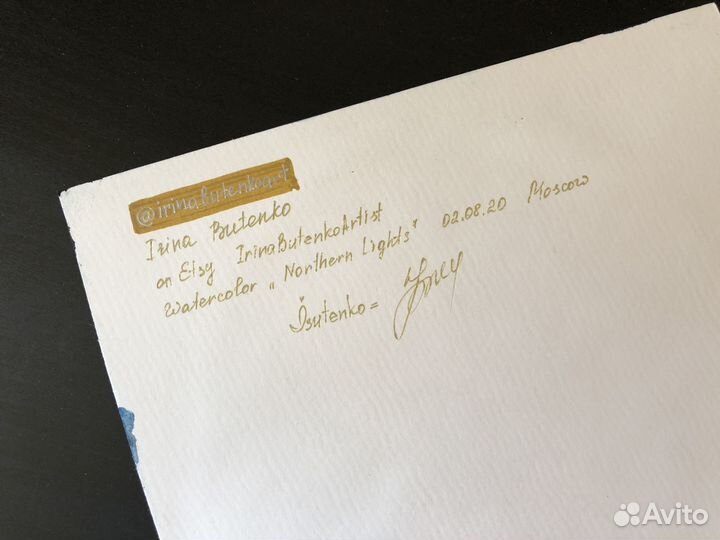 @irinabutenkoart
Irina Butenko
on Etsy IrinaButenkoArtist
Watercolor „Northern Lights" 02.08.20 Moscow
Avito